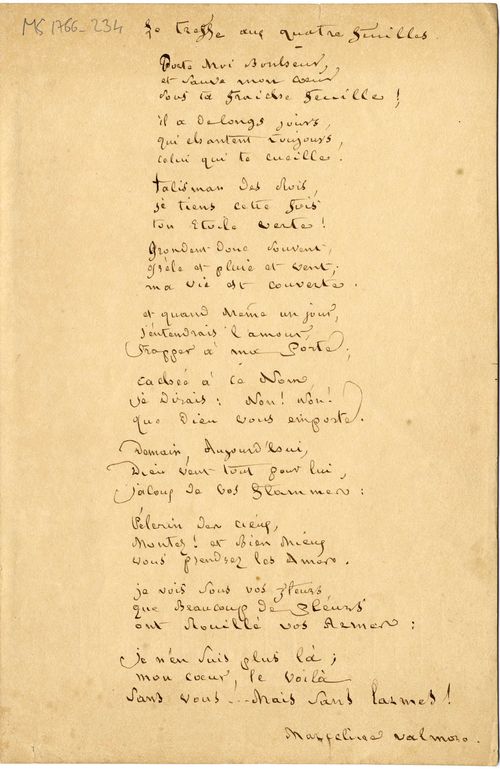 MS 1766-234
Le treffle aux quatre feuilles.
Porte moi Bonheur,
et sauve mon cœur
sous ta fraîche feuille !
il a de longs jours,
qui chantent toujours,
celui qui te cueille.
Talisman des Rois,
je tiens cette fois
ton Etoile verte !
Grondent donc souvent,
grêle et pluie et vent,
ma vie est couverte.
et quand même un jour,
j'entendrais l'amour,
frapper à ma Porte ;
cachée à ce Nom
je Dirais : Non ! Non !
que Dieu vous emporte.
Demain, Aujourd'hui,
Dieu veut tout pour lui,
jaloux de vos flammes :
Pélerin des cieux,
Montez ! et Bien Mieux
vous prendrez les Ames.
je vois sous vos fleurs
que Beaucoup de pleurs
ont Rouillé vos Armes :
je n'en suis plus là ;
mon cœur, le voilà
sans vous... Mais sans larmes !
Marceline Valmore.